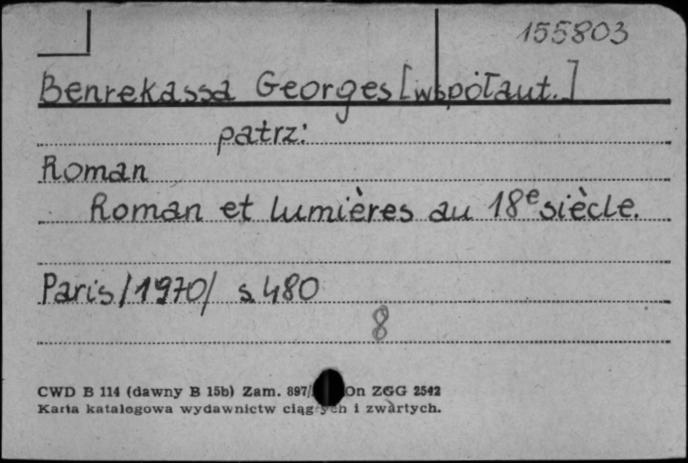 155803
Benrekassa Georges [współaut.]
patrz:
Roman
Roman et lumières au 18e siècle.
Paris /1970/ s. 480
8
CWD B 114 (dawny B 15b) Zam. 897/ On ZGG 2542
Karta katalogowa wydawnictw ciągłych i zwartych.